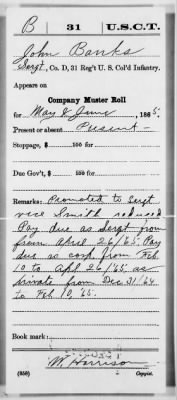 B | 31 | U.S.C.T.
John Banks
Sergt, Co. D, 31 Reg't U. S. Col'd Infantry.
Appears on
Company Muster Roll
for May & June, 1865.
Present or absent Present
Stoppage, $ 100 for
Due Gov't, $ 100 for
Remarks: Promoted to Sergt
vice Smith reduced
Pay due as Sergt from
from April 26/65. Pay
due as corp. from Feb
10 to Apl 26/65, as
private from Dec 31/64
to Feb 10, 65.
Book mark:
W. Harrison
(358) Copyist.